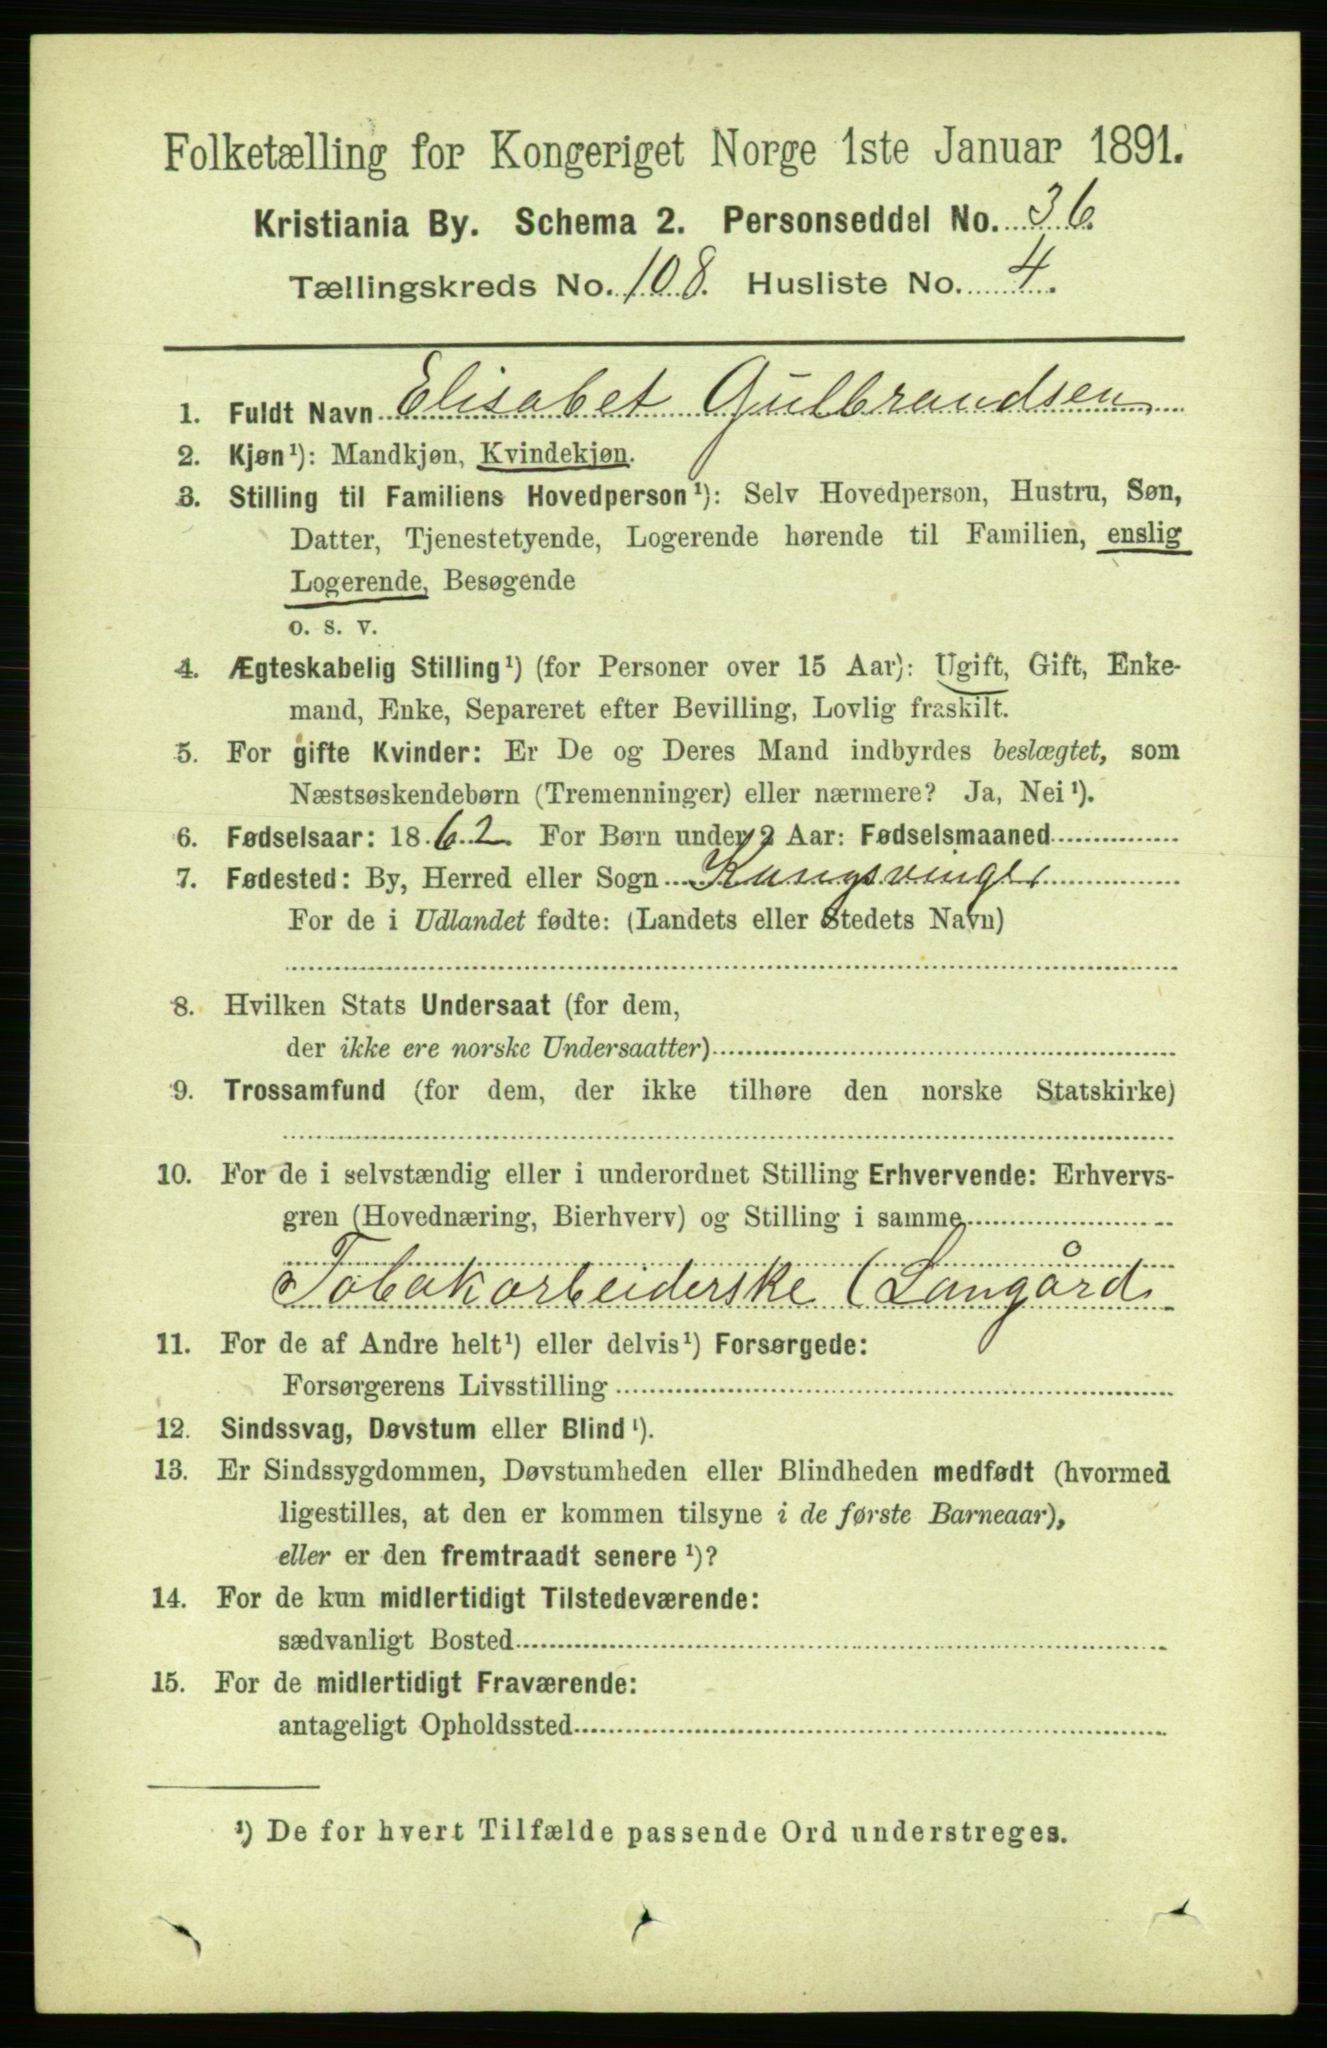 Folketælling for Kongeriget Norge 1ste Januar 1891.
Kristiania By. Schema 2. Personseddel No. 36.
Tællingskreds No. 108. Husliste No. 4.
1. Fuldt Navn Elisabet Gulbrandsen
2. Kjøn¹): Mandkjøn, Kvindekjøn.
3. Stilling til Familiens Hovedperson¹): Selv Hovedperson, Hustru, Søn,
Datter, Tjenestetyende, Logerende hørende til Familien, enslig
Logerende, Besøgende
o. s. v.
4. Ægteskabelig Stilling¹) (for Personer over 15 Aar): Ugift, Gift, Enke-
mand, Enke, Separeret efter Bevilling, Lovlig fraskilt.
5. For gifte Kvinder: Er De og Deres Mand indbyrdes beslægtet, som
Næstsøskendebørn (Tremenninger) eller nærmere? Ja, Nei¹).
6. Fødselsaar: 1862. For Børn under 2 Aar: Fødselsmaaned
7. Fødested: By, Herred eller Sogn Kungsvinger
For de i Udlandet fødte: (Landets eller Stedets Navn)
8. Hvilken Stats Undersaat (for dem,
der ikke ere norske Undersaatter)
9. Trossamfund (for dem, der ikke tilhøre den norske Statskirke)
10. For de i selvstændig eller i underordnet Stilling Erhvervende: Erhvervs-
gren (Hovednæring, Bierhverv) og Stilling i samme
Tobakarbeiderske (Langård
11. For de af Andre helt¹) eller delvis¹) Forsørgede:
Forsørgerens Livsstilling
12. Sindssvag, Døvstum eller Blind¹).
13. Er Sindssygdommen, Døvstumheden eller Blindheden medfødt (hvormed
ligestilles, at den er kommen tilsyne i de første Barneaar),
eller er den fremtraadt senere¹)?
14. For de kun midlertidigt Tilstedeværende:
sædvanligt Bosted
15. For de midlertidigt Fraværende:
antageligt Opholdssted
¹) De for hvert Tilfælde passende Ord understreges.